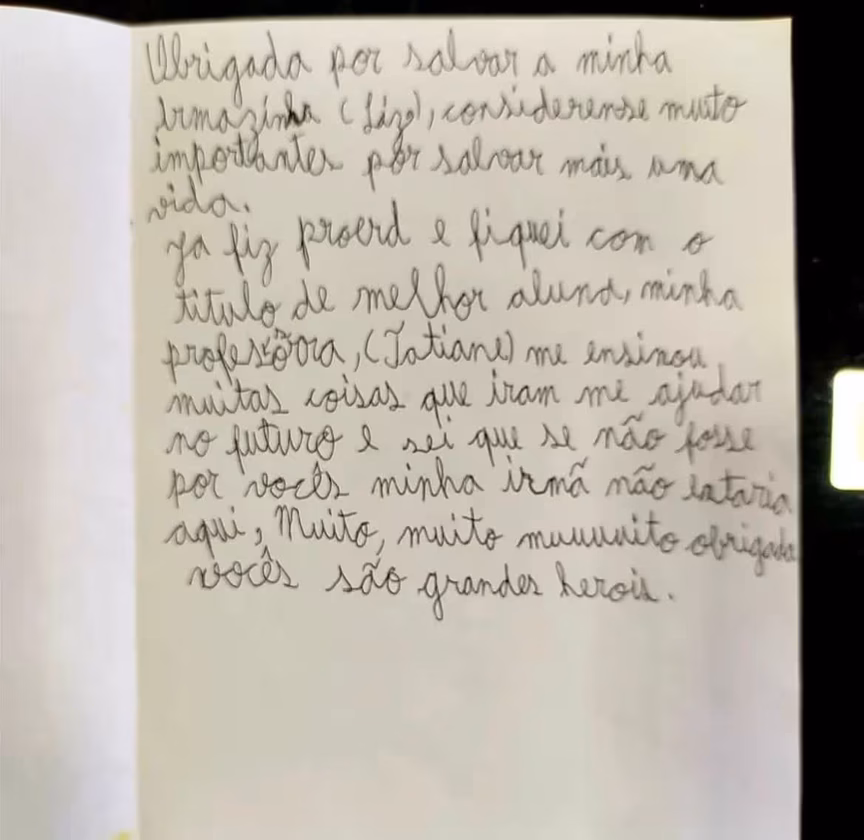 Obrigada por salvar a minha
irmãzinha (Liz), considerense muito
importantes por salvar mais uma
vida.
Ja fiz proerd e fiquei com o
titulo de melhor aluna, minha
professora, (Tatiane) me ensinou
muitas coisas que iram me ajudar
no futuro e sei que se não fosse
por vocês minha irmã não estaria
aqui, Muito, muito muuuuito obrigada
vocês são grandes herois.